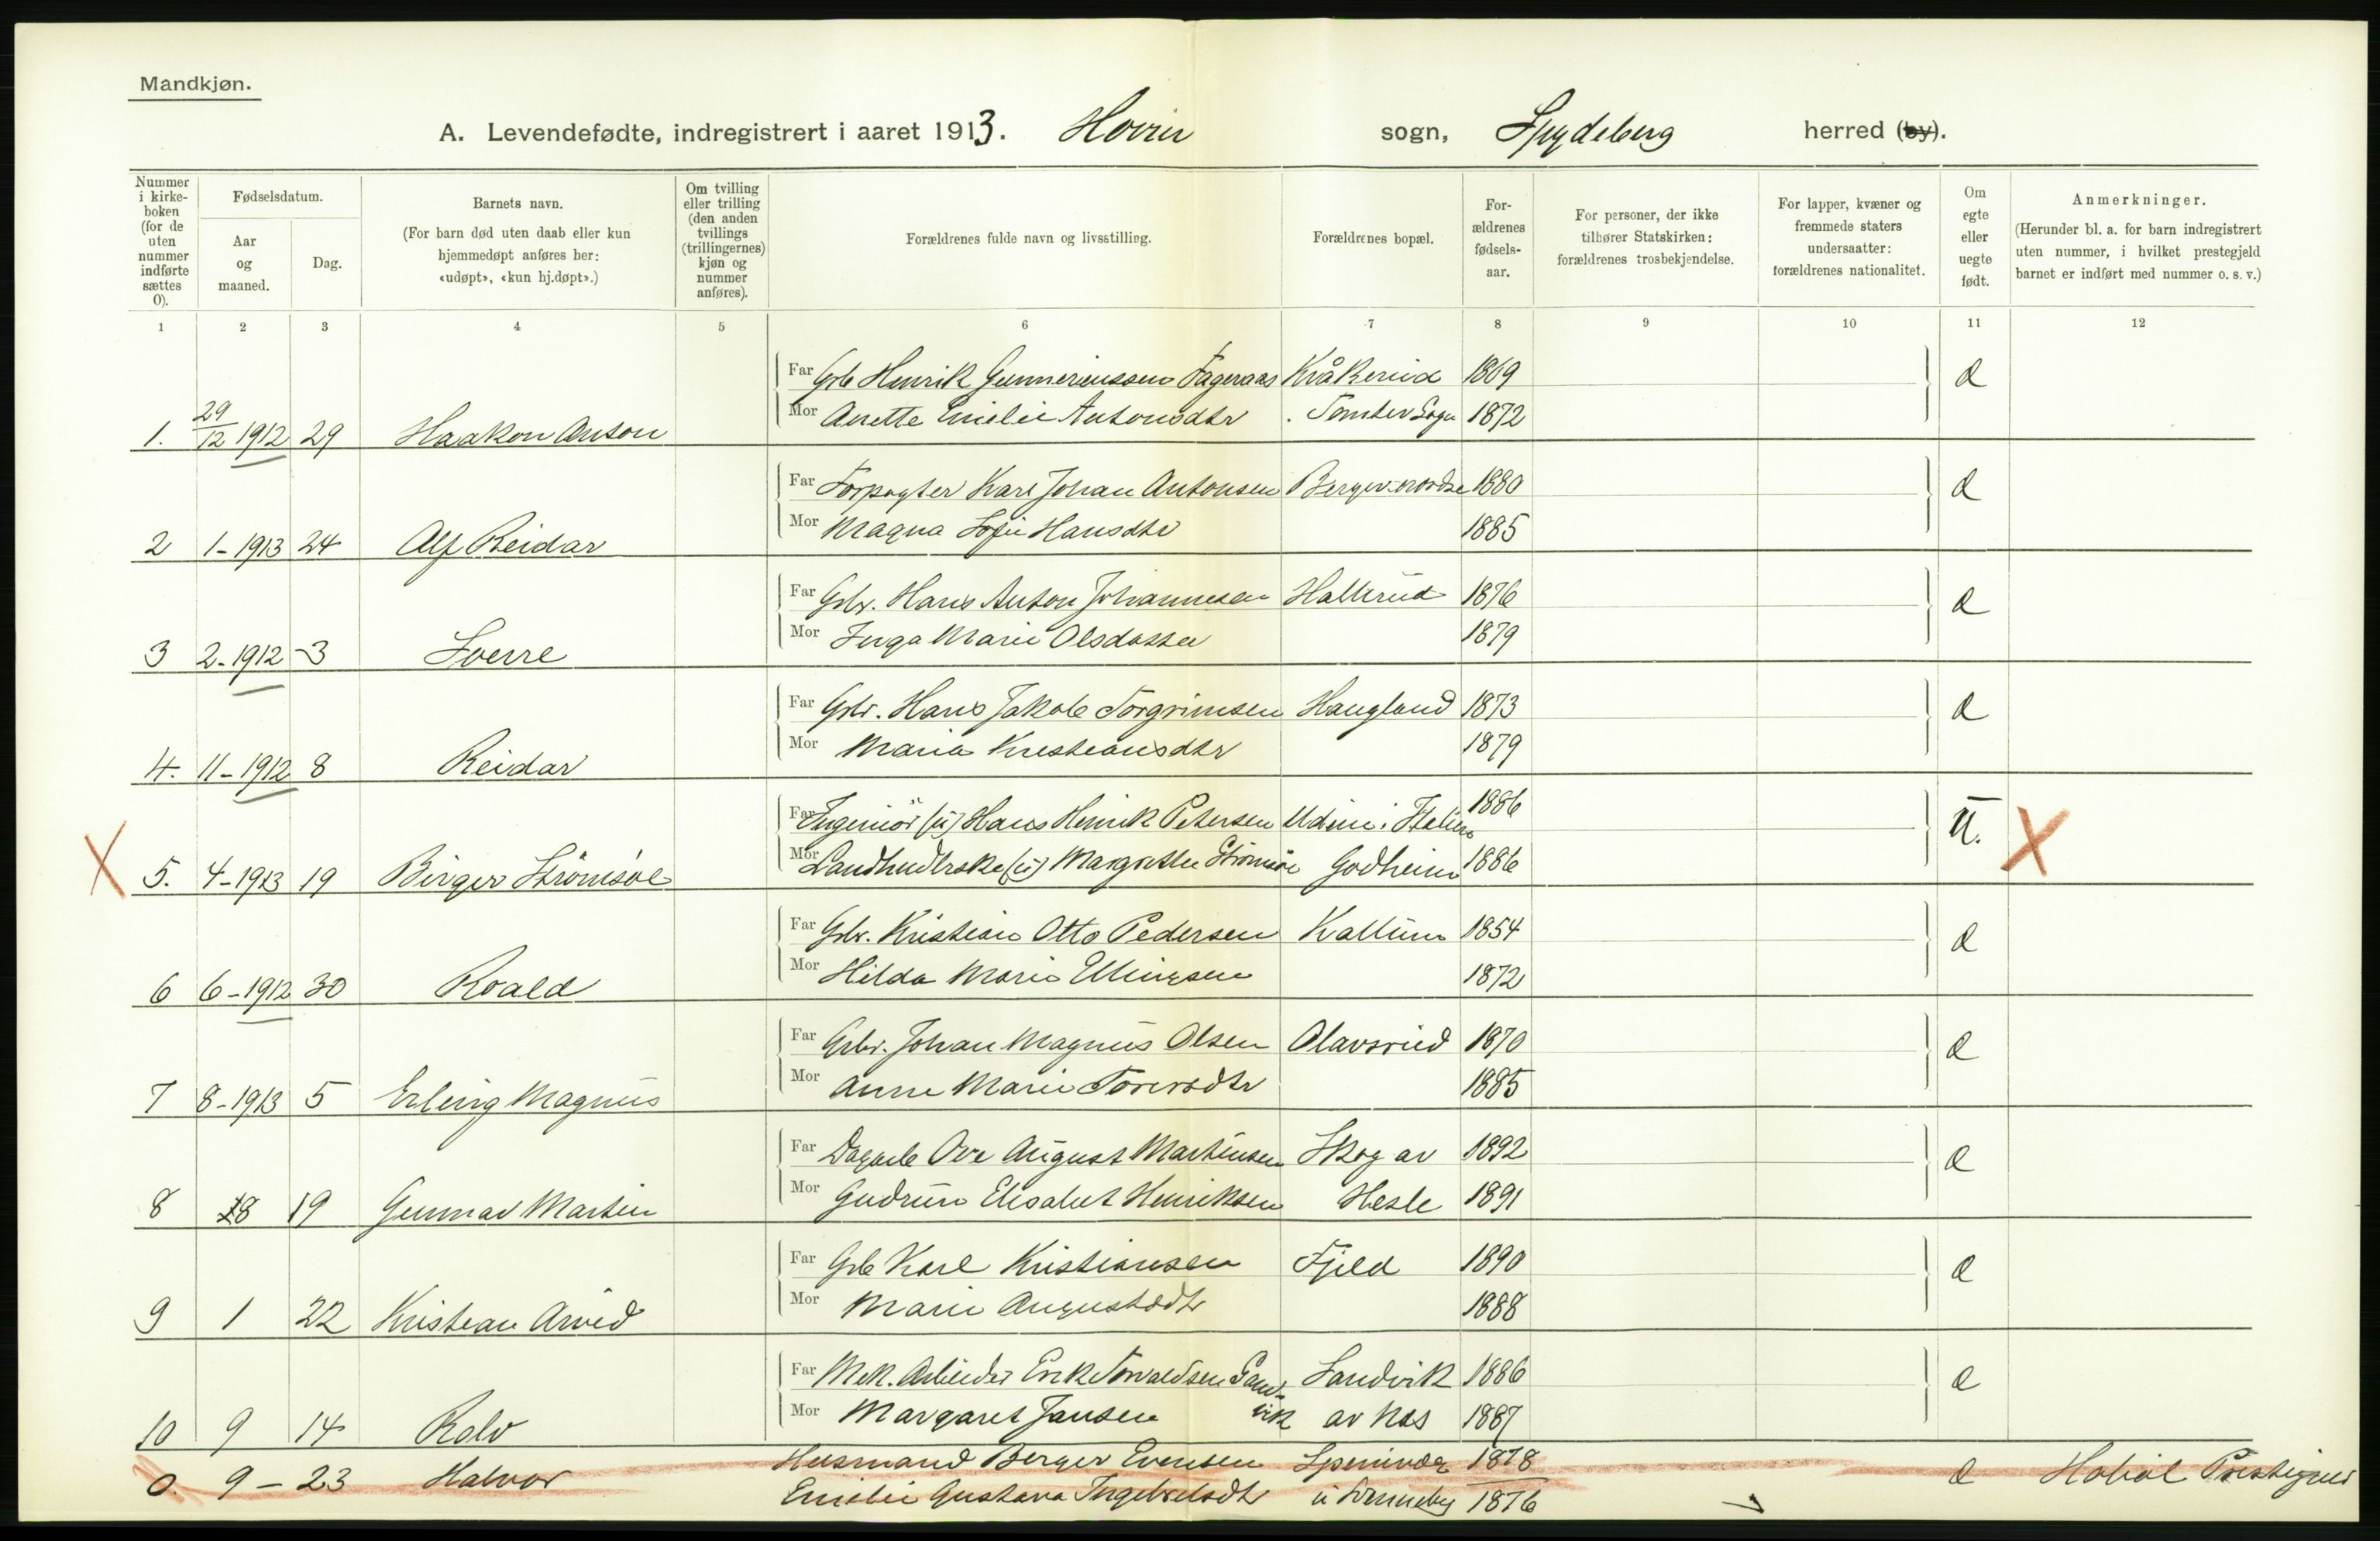 Mandkjøn.
A. Levendefødte, indregistrert i aaret 1913. Hovin sogn, Spydeberg herred (by).
Nummer i kirke-boken (for de uten nummer indførte sættes 0).
Fødselsdatum.
Aar og maaned.
Dag.
Barnets navn.
(For barn død uten daab eller kun hjemmedøpt anføres her: «udøpt», «kun hj.døpt».)
Om tvilling eller trilling (den anden tvillings (trillingernes) kjøn og nummer anføres).
Forældrenes fulde navn og livsstilling.
Forældrenes bopæl.
For-ældrenes fødsels-aar.
For personer, der ikke tilhører Statskirken: forældrenes trosbekjendelse.
For lapper, kvæner og fremmede staters undersaatter: forældrenes nationalitet.
Om egte eller uegte født.
Anmerkninger.
(Herunder bl. a. for barn indregistrert uten nummer, i hvilket prestegjeld barnet er indført med nummer o. s. v.)
1 2 3 4 5 6 7 8 9 10 11 12
Far Grb Henrik Gunneriussen Fageraas Kråkerud 1869 e
Mor Anette Emelie Antonsdtr Tomter Sogn 1872
1. 29/12 1912 29 Haakon Anton
Far Forpagter Karl Johan Antonsen Berger nordre 1880 e
Mor Magna Sofie Hansdtr 1885
2 1-1913 24 Alf Reidar
Far Grbr. Hans Anton Johannesen Hallerud 1876 e
Mor Inga Marie Olsdatter 1879
3 2-1912 3 Sverre
Far Grbr. Hans Jakob Torgrimsen Haugland 1873 e
Mor Maria Kristiansdtr 1879
4. 11-1912 8 Reidar
Far Ingeniör (u) Hans Henrik Petersen Udine i Italien 1886 u.
Mor Landhudlrske (u) Margrethe Strömsöe Godheim 1886
5. 4-1913 19 Birger Strömsöe
Far Grbr. Kristian Otto Pedersen Kallum 1854 e
Mor Hilda Marie Ellingsen 1872
6 6-1912 30 Roald
Far Grbr. Johan Magnus Olsen Olavsrud 1870 e
Mor Anne Marie Toversdtr 1885
7 8-1913 5 Erling Magnus
Far Dagarb Ove August Martinsen Skog av 1892 e
Mor Gudrun Elisabet Henriksen Hesle 1891
8 8 19 Gunnar Martin
Far Grb Karl Kristiansen Fjeld 1890 e
Mor Marie Augustsdtr 1888
9 1 22 Kristian Arvid
Far Mek. Arbeider Erik Torvaldsen Sand- Sandvik 1886 e
Mor Margaret Jansen vik av Næs 1887
10 9 14 Rolv
Husmand Berger Evensen 1878
0. 9 - 23 Halvor e Hobøl Prestegjeld
Emelie Gustava Ingebretsdtr 1876